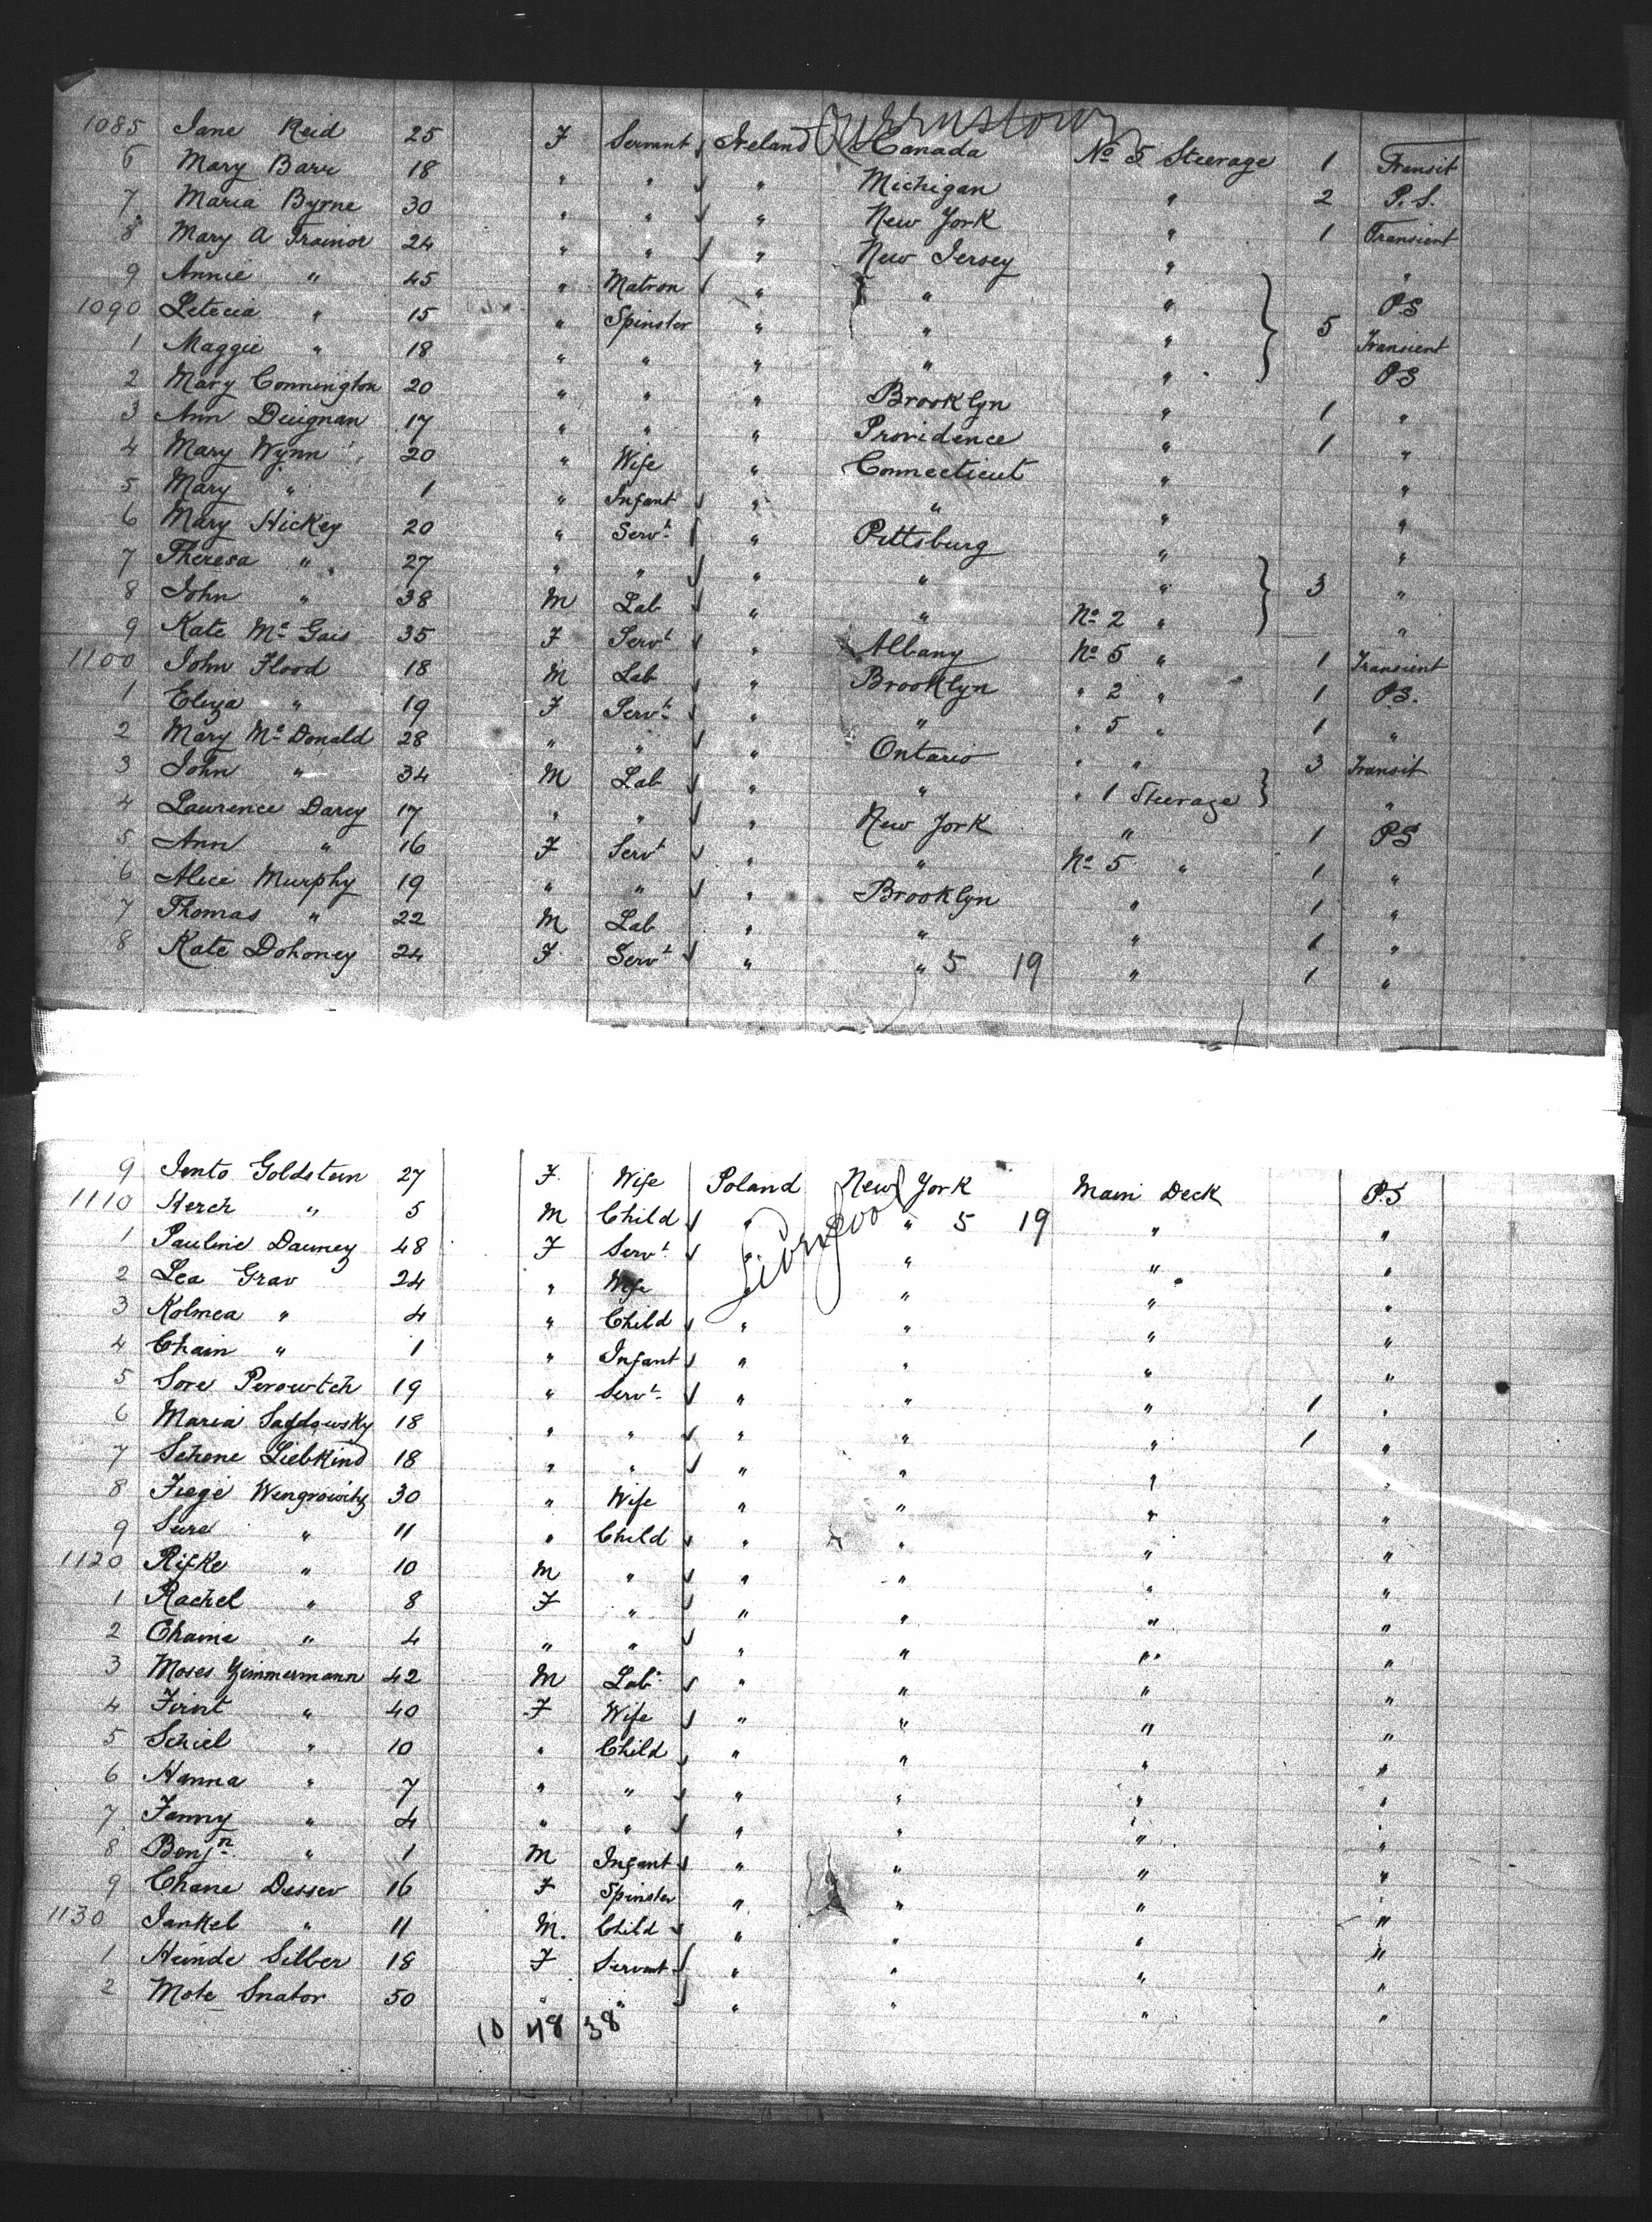 Queenstown
1085 Jane Reid 25 F Servant Ireland Canada No 5 Steerage 1 Transit
6 Mary Barr 18 " " " Michigan " 2 P.S.
7 Maria Byrne 30 " " " New York " 1 Transient
8 Mary A Trainor 24 " " " New Jersey " "
9 Annie " 45 " Matron " " " PS
1090 Letecia " 15 " Spinster " " " 5 Transient
1 Maggie " 18 " " " " " PS
2 Mary Connington 20 " " " Brooklyn " 1 "
3 Ann Duignan 17 " " " Providence " 1 "
4 Mary Wynn 20 " Wife " Connecticut " "
5 Mary " 1 " Infant " " " "
6 Mary Hickey 20 " Servt " Pittsburg " "
7 Theresa " 27 " " " " " 3 "
8 John " 38 M Lab " " No 2 " "
9 Kate Mc Gais 35 F Servt " Albany No 5 " 1 Transient
1100 John Flood 18 M Lab " Brooklyn " 2 " 1 P.S.
1 Eliza " 19 F Servt " " " 5 " 1 "
2 Mary Mc Donald 28 " " " Ontario " " 3 Transit
3 John " 34 M Lab " " " 1 Steerage "
4 Laurence Darcy 17 " " " New York " 1 PS
5 Ann " 16 F Servt " " No 5 " 1 "
6 Alice Murphy 19 " " " Brooklyn " 1 "
7 Thomas " 22 M Lab " " " 1 "
8 Kate Dohoney 24 F Servt " " 5 19 " 1 "
9 Jento Goldstein 27 F Wife Poland New York Main Deck P.S
1110 Herch " 5 M Child " " 5 19 " "
Liverpool
1 Pauline Dauney 48 F Servt " " " "
2 Lea Grav 24 " Wife " " "
3 Kolmea " 4 " Child " " " "
4 Chain " 1 " Infant " " " "
5 Sore Perowtch 19 " Servt " " " 1 "
6 Maria 18 " " " " " 1 "
7 Schene Liebkind 18 " " " " " "
8 Fiege Wengrowitz 30 " Wife " " " "
9 Sure " 11 " Child " " " "
1120 Rifke " 10 M " " " " "
1 Rachel " 8 F " " " " "
2 Chame " 4 " " " " " "
3 Moses Zimmermann 42 M Lab " " " "
4 Firnt " 40 F Wife " " " "
5 Schiel " 10 " Child " " " "
6 Hanna " 7 " " " " " "
7 Fanny " 4 " " " " " "
8 Benjn " 1 M Infant " " " "
9 Chane Dusser 16 F Spinster " " " "
1130 Jankel " 11 M. Child " " " "
1 Heinde Silber 18 F Servant " " " "
2 Mote Snator 50 " " " " " "
10 48 38